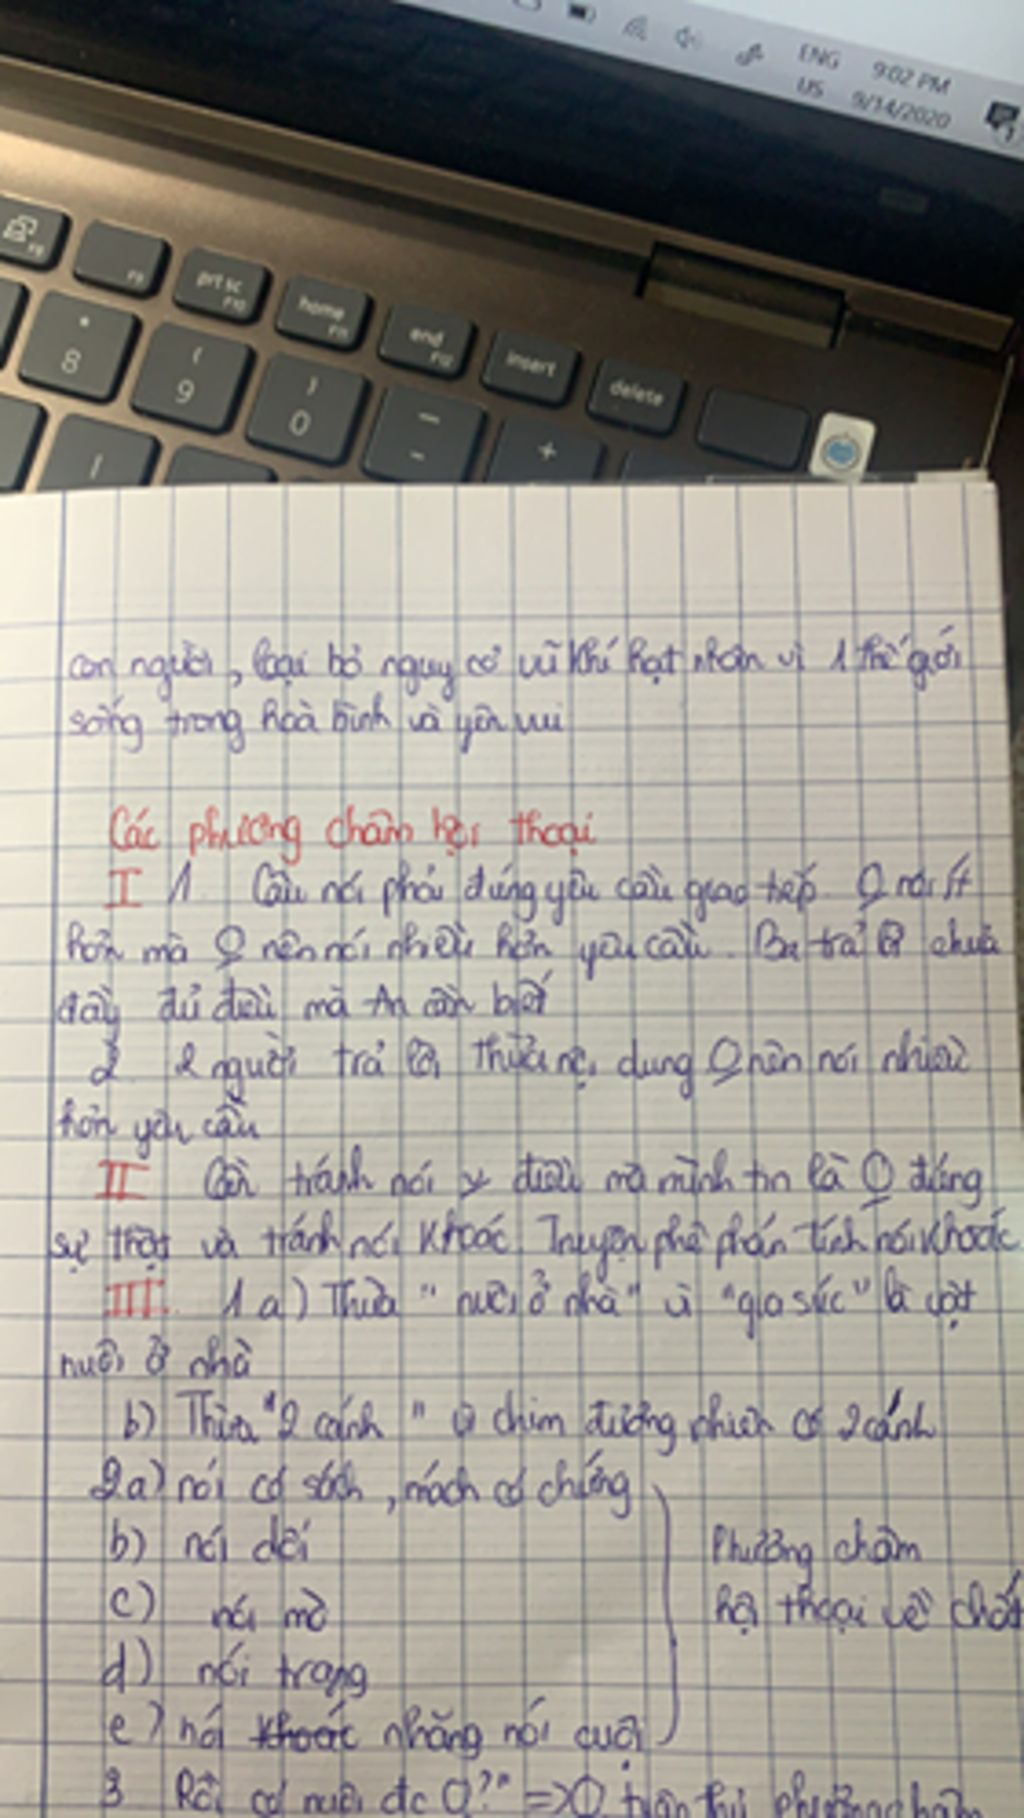 ENG 9:02 PM
US 9/14/2020
F8 F9 prt sc F10 home F11 end F12 insert delete
* 8 ( 9 ) 0 — - +
con người, loại bỏ nguy cơ vũ khí hạt nhân vì 1 thế giới
sống trong hoà bình và yên vui
Các phương châm hội thoại
I 1. Câu nói phải đúng yêu cầu giao tiếp. O nói ít
hơn mà O nên nói nhiều hơn yêu cầu. Ba trả chưa
đầy đủ điều mà An cần biết
2. 2 người trả lời thừa nội dung O nên nói nhiều
hơn yêu cầu
II Cần tránh nói điều mà mình tin là O đúng
sự thật và tránh nói khoác. Truyện phê phán tính nói khoác
III. 1 a) Thừa "nuôi ở nhà" vì "gia súc" là vật
nuôi ở nhà
b) Thừa "2 cánh" vì chim đương nhiên có 2 cánh
2a) nói có sách, mách có chứng
b) nói dối
Phương châm
c) nói mò
hội thoại về chất
d) nói trạng
e) nói khoác nhăng nói cuội
3 Rồi có nuôi đc O?" => O tuân thủ phương châm